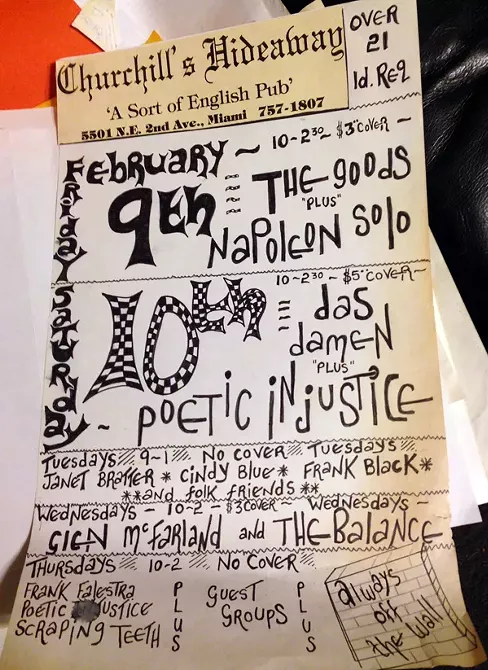 Churchill's Hideaway
'A Sort of English Pub'
5501 N.E. 2nd Ave., Miami 757-1807
OVER
21
Id. Req
Friday
February
9th
10-2³⁰- $3" cover ~
THE goods
"PLUS"
Napoleon Solo
Saturday
10th
10-2³⁰ - $5" cover ~
das
damen
"PLUS"
~ POETIC INJUSTICE
Tuesdays 9-1 No Cover Tuesdays
Janet Bratter * Cindy Blue * Frank Black *
**and folk friends **
Wednesdays - 10-2 - $3 cover - Wednesdays ~
Glen McFarland and THE Balance
Thursdays 10-2 No Cover
Frank Falestra
Poetic Justice
Scraping Teeth
PLUS
Guest
Groups
PLUS
always
off
the wall